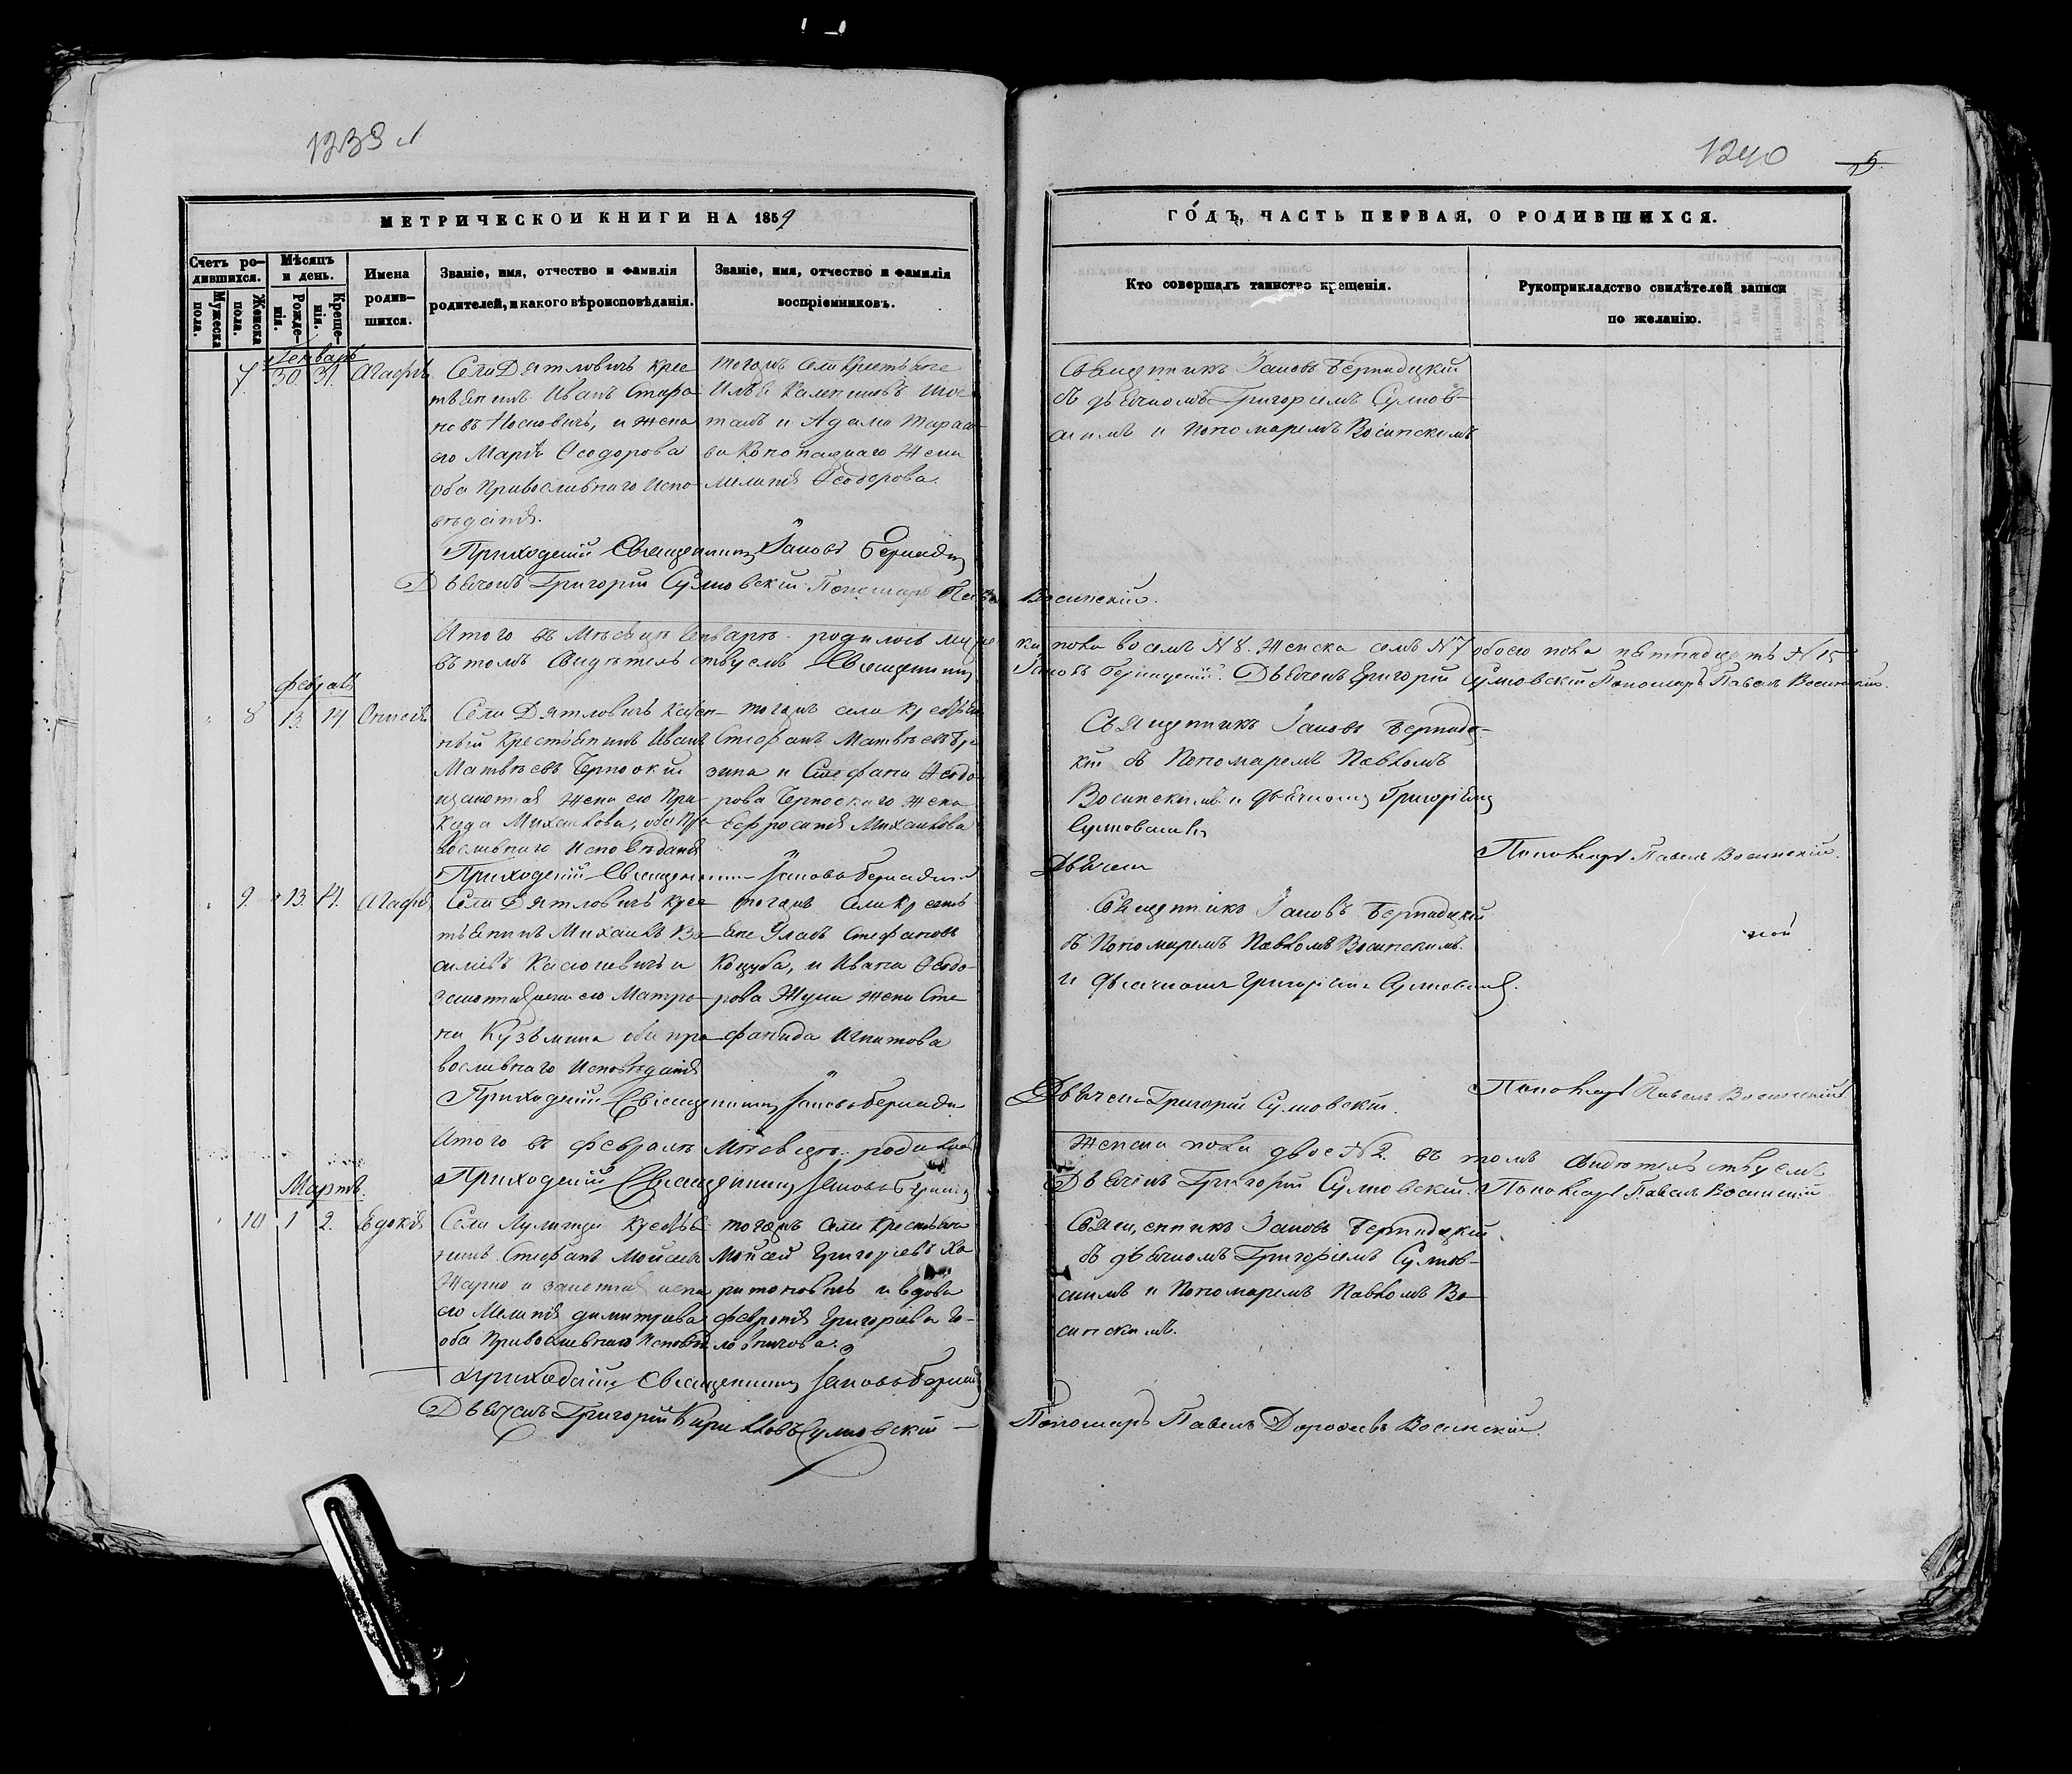 1239
1240
5
МЕТРИЧЕСКОЙ КНИГИ НА 1859
ГОДЪ, ЧАСТЬ ПЕРВАЯ, О РОДИВШИХСЯ.
Счетъ ро-
дившихся.
Мужеска
пола.
Женска
пола.
Мѣсяцъ
и день.
Рожде-
нія.
Креще-
нія.
Имена
родив-
шихся.
Званіе, имя, отчество и фамилія
родителей, и какого вѣроисповѣданія.
Званіе, имя, отчество и фамилія
воспріемниковъ.
Кто совершалъ таинство крещенія.
Рукоприкладство свидѣтелей записи
по желанію.
Генварь
7 30. 31. Агафія
Села Дятловичъ крес
тьянинъ Иванъ Стефа
новъ Носновичъ, и жена
его Марія Ѳеодорова
Оба Православнаго Испо
вѣданія.
тогожъ села крестьяне
Илья Калениковъ Шос
такъ и Адама Тарасо
ва Конопацкаго жена
Меланія Ѳеодорова.
Священникъ Іаковъ Бернадцкій
съ дьячкомъ Григоріемъ Сулков-
скимъ и Пономаремъ Восинскимъ
Приходскій Священникъ Іаковъ Бернадц
Дьячекъ Григорій Сулковскій Пономарь Павелъ Восинскій.
Итого въ Мѣсяцѣ Генварѣ родилось муже
ка пола восемъ № 8. Женска семъ № 7 обоего пола пятнадцать № 15
въ томъ Свидѣтельствуемъ Священникъ
Іаковъ Бернадцкій. Дьячекъ Григорій Сулковскій Пономарь Павелъ Восинскій.
Февраль
8 13. 14 Онисія
Села Дятловичъ Казен
ный Крестьянинъ Иванъ
Матвѣевъ Терноокій
и законная жена его Прис
кеда Михайлова, оба Пра
вославнаго Исповѣданія
тогожъ села крестьян
Стефанъ Матвѣевъ
зина и Стефана Ѳеодо
рова Терноокаго жена
Ефросинія Михайлова
Священникъ Іаковъ Бернадц-
кій съ Пономаремъ Павломъ
Восинскимъ и дьячкомъ Григоріемъ
Сулковскимъ
Приходскій Священникъ Іаковъ Бернадцкій
Дьячекъ
Пономарь Павелъ Восинскій.
9. 13. 14. Агафія
Села Дятловичъ крес
тьянинъ Михаилъ Ва
силіевъ Касюкевичъ и
законная жена его Матро
на Кузьмина оба пра
вославнаго Исповѣданія
тогожъ села крестъ
яне Уласъ Стефановъ
Коцуба, и Ивана Ѳеодо-
рова Жука жена Сте
фанида Игнатова
Священникъ Іаковъ Бернадцкій
съ Пономаремъ Павломъ Восинскимъ.
и дьячкомъ Григоріемъ Сулковскимъ.
Приходскій Священникъ Іаковъ Бернадц
Дьячекъ Григорій Сулковскій.
Пономарь Павелъ Восинскій
Итого въ Февралѣ Мѣсяцѣ родилось
Женска пола двое № 2. въ томъ Свидѣтельствуемъ
Приходскій Священникъ Іаковъ Бернадц
Дьячекъ Григорій Сулковскій. Пономарь Павелъ Восинскій
Мартъ.
10 1 2. Евдокія
Села Лулинца крестья
нинъ Стефанъ Мойсеевъ
Жарно и законная жена
его Меланія Димитріева
оба Православнаго Исповѣд
тогожъ села крестьяни
Мойсей Григоріевъ Ха
ритоновичъ и вдова
Февронія Григоріева Го-
ловничова.
Священникъ Іаковъ Бернадцкій
съ дьячкомъ Григоріемъ Сулков-
скимъ и Пономаремъ Павломъ Во
синскимъ.
Приходскій Священникъ Іаковъ Бернадц
Дьячекъ Григорій Кириловъ Сулковскій
Пономарь Павелъ Дорофеевъ Восинскій.